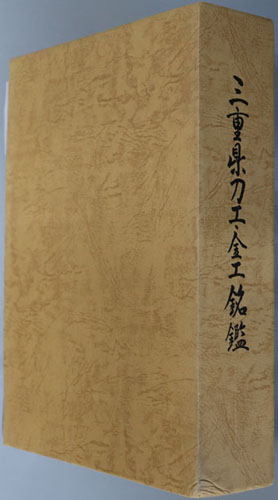 三重県刀工・金工銘鑑